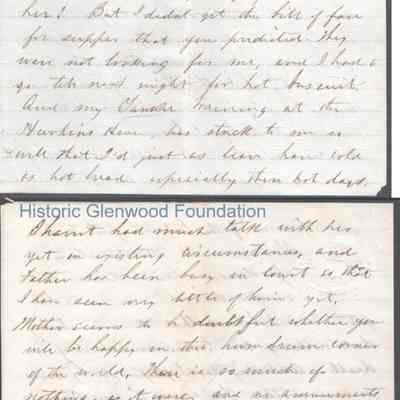 her? But I didn't get the bill of fare
for supper that you predicted They
were not looking for me, and I had to
go till next night for hot biscuit
And my training at the
Hawkins House, has stuck to me so
well that I'd just as leave have cold
as hot bread especially these hot days.
Historic Glenwood Foundation
I haint had much talk with her
yet on existing circumstances, and
Father has been busy in Court so that
I have seen very little of him yet,
Mother seems to be doubtful whether you
will be happy in this humdrum corner
of the world, There is so much of
nothing, as it were, and no amusements